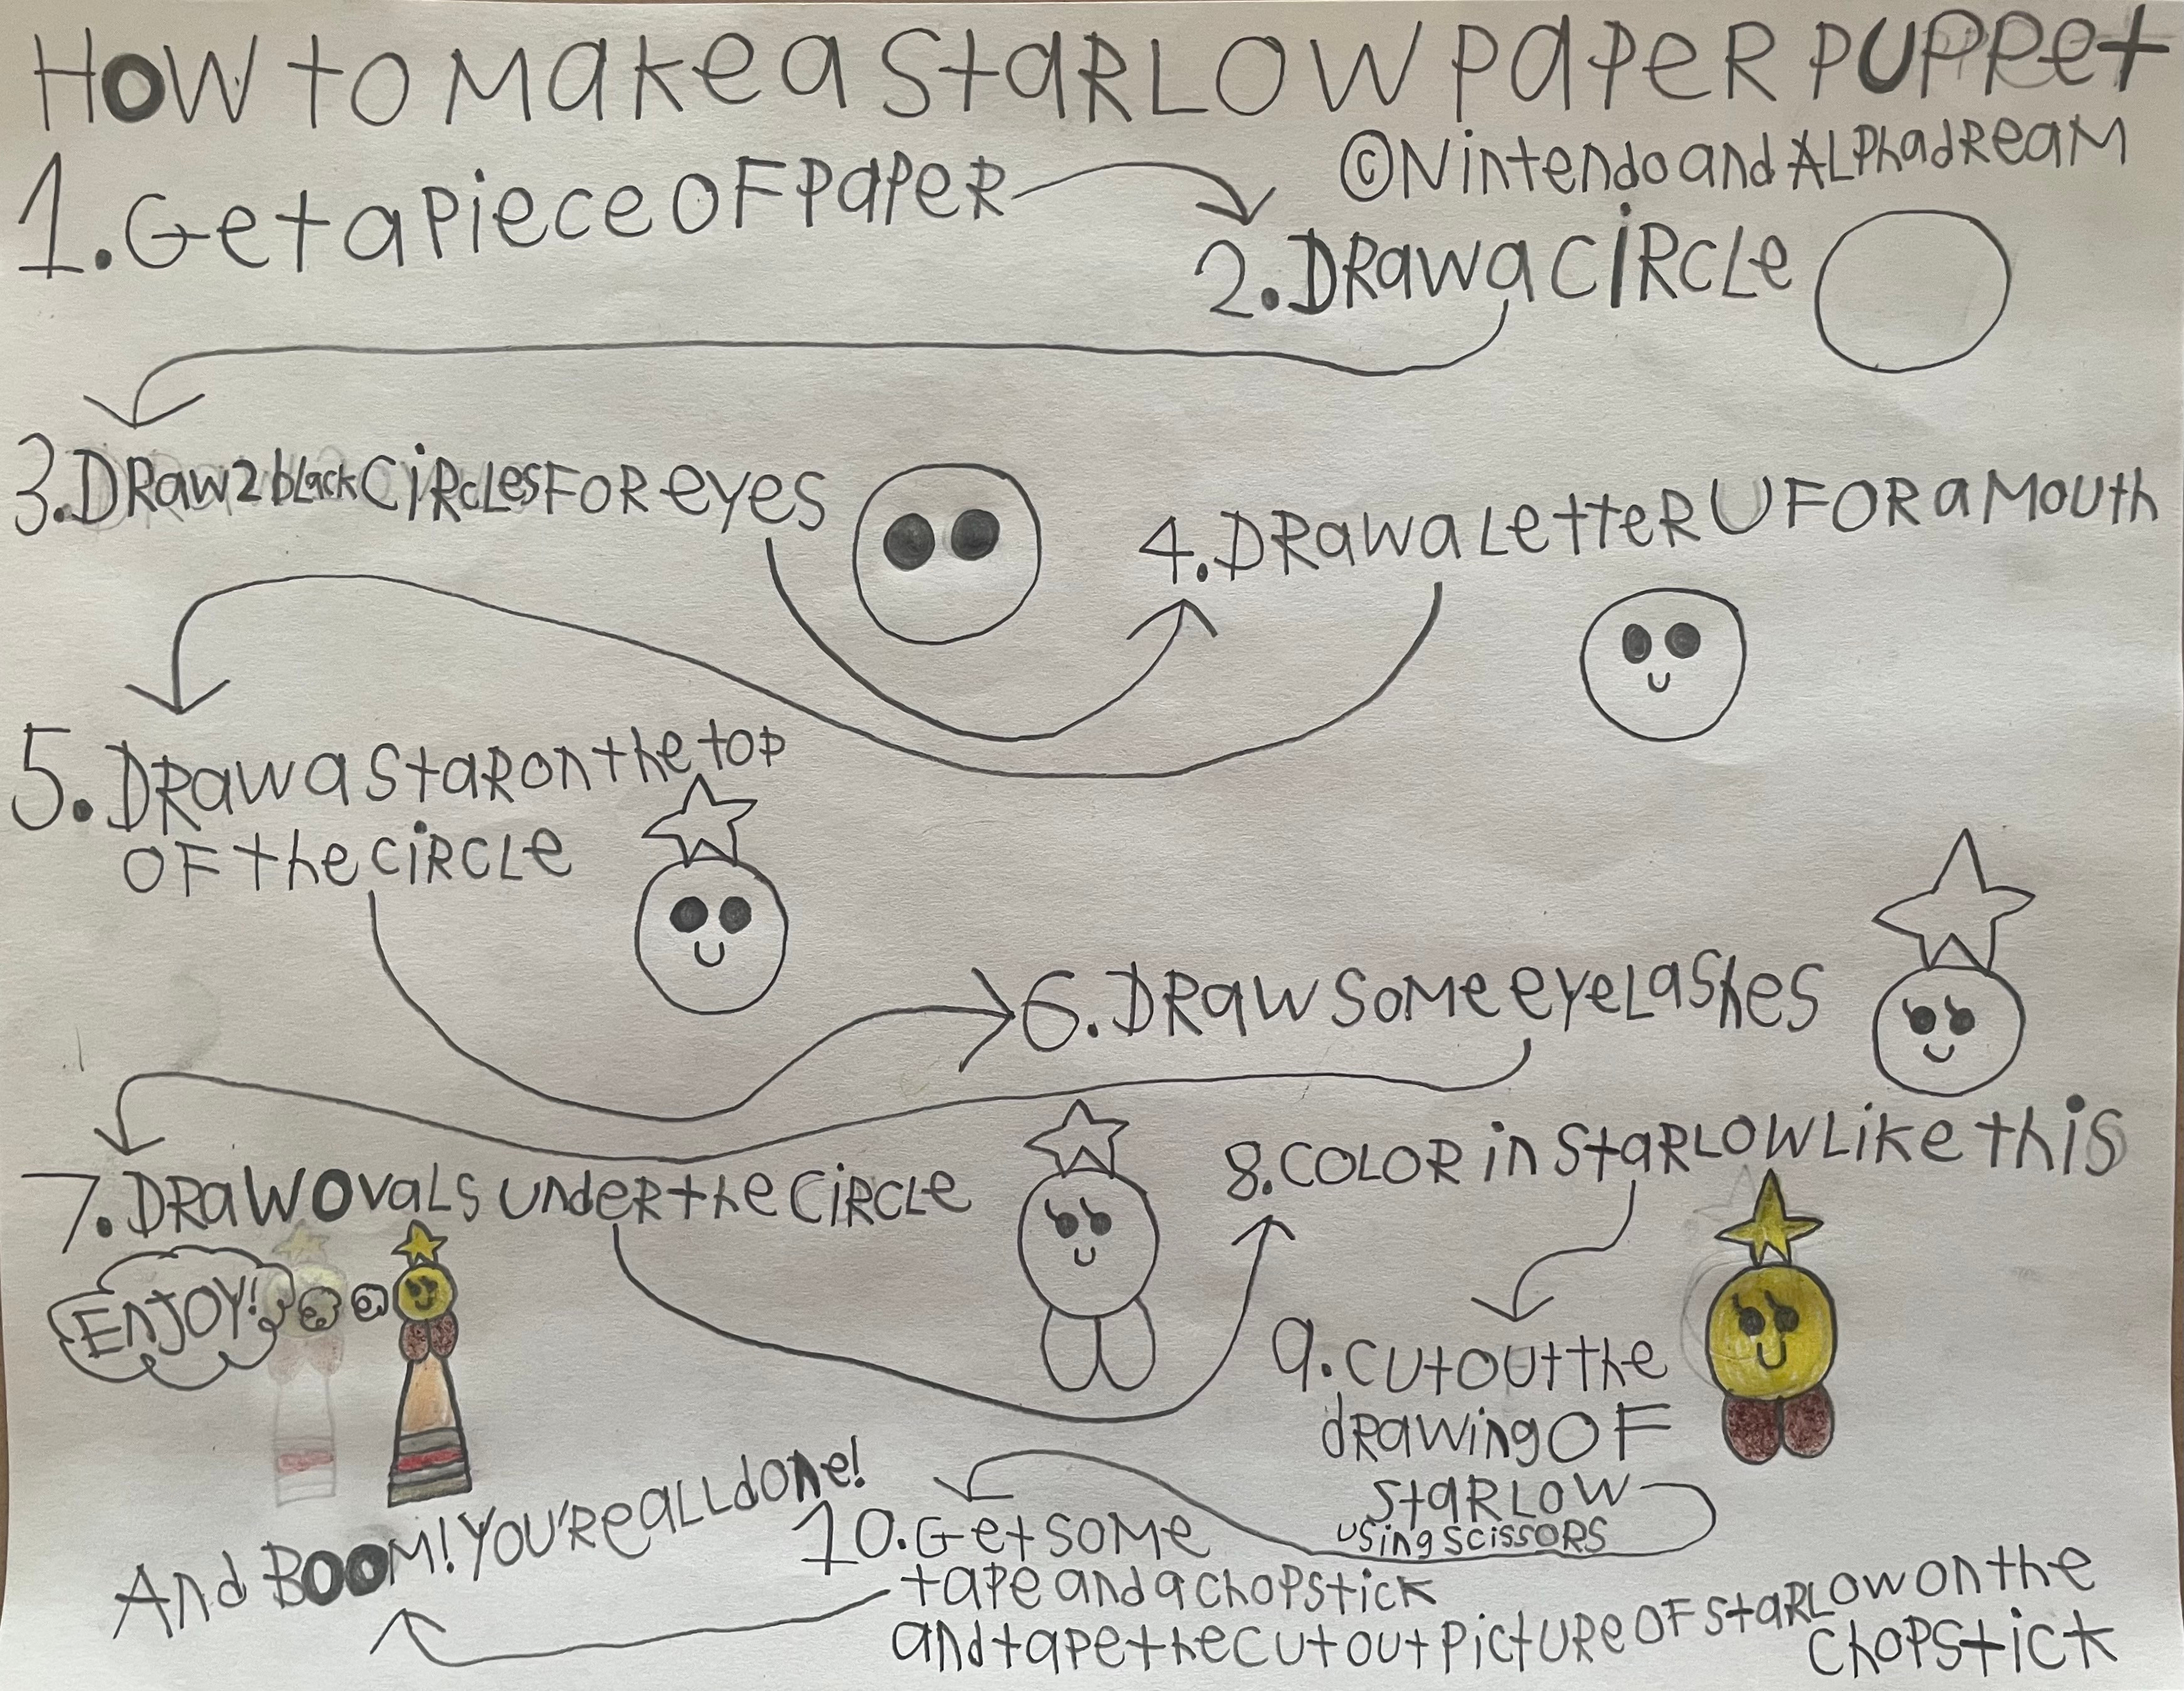 HOW to Make a StaRLOW PaPeR PUPPet
© Nintendo and ALPhadReaM
1. Get a Piece OF PaPeR
2. DRaw a CiRcLe
3. DRaw 2 bLack CiRcLes FOR eyes
4. DRaw a LetteR U FOR a MOUth
5. DRaw a StaR on the toP
OF the CiRCLe
6. DRaw SoMe eyeLashes
7. DRaW OvaLs UndeR the CiRCLe
8. COLOR in StaRLOW Like this
ENJOY!
9. CUt OUt the
dRawing OF
StaRLOW
using scissORS
10. Get SOMe
taPe and a ChOPstick
and taPe the CUt OUt PictURe OF StaRLOW on the
ChOPStick
And BOOM! YOU'Re aLL dOne!